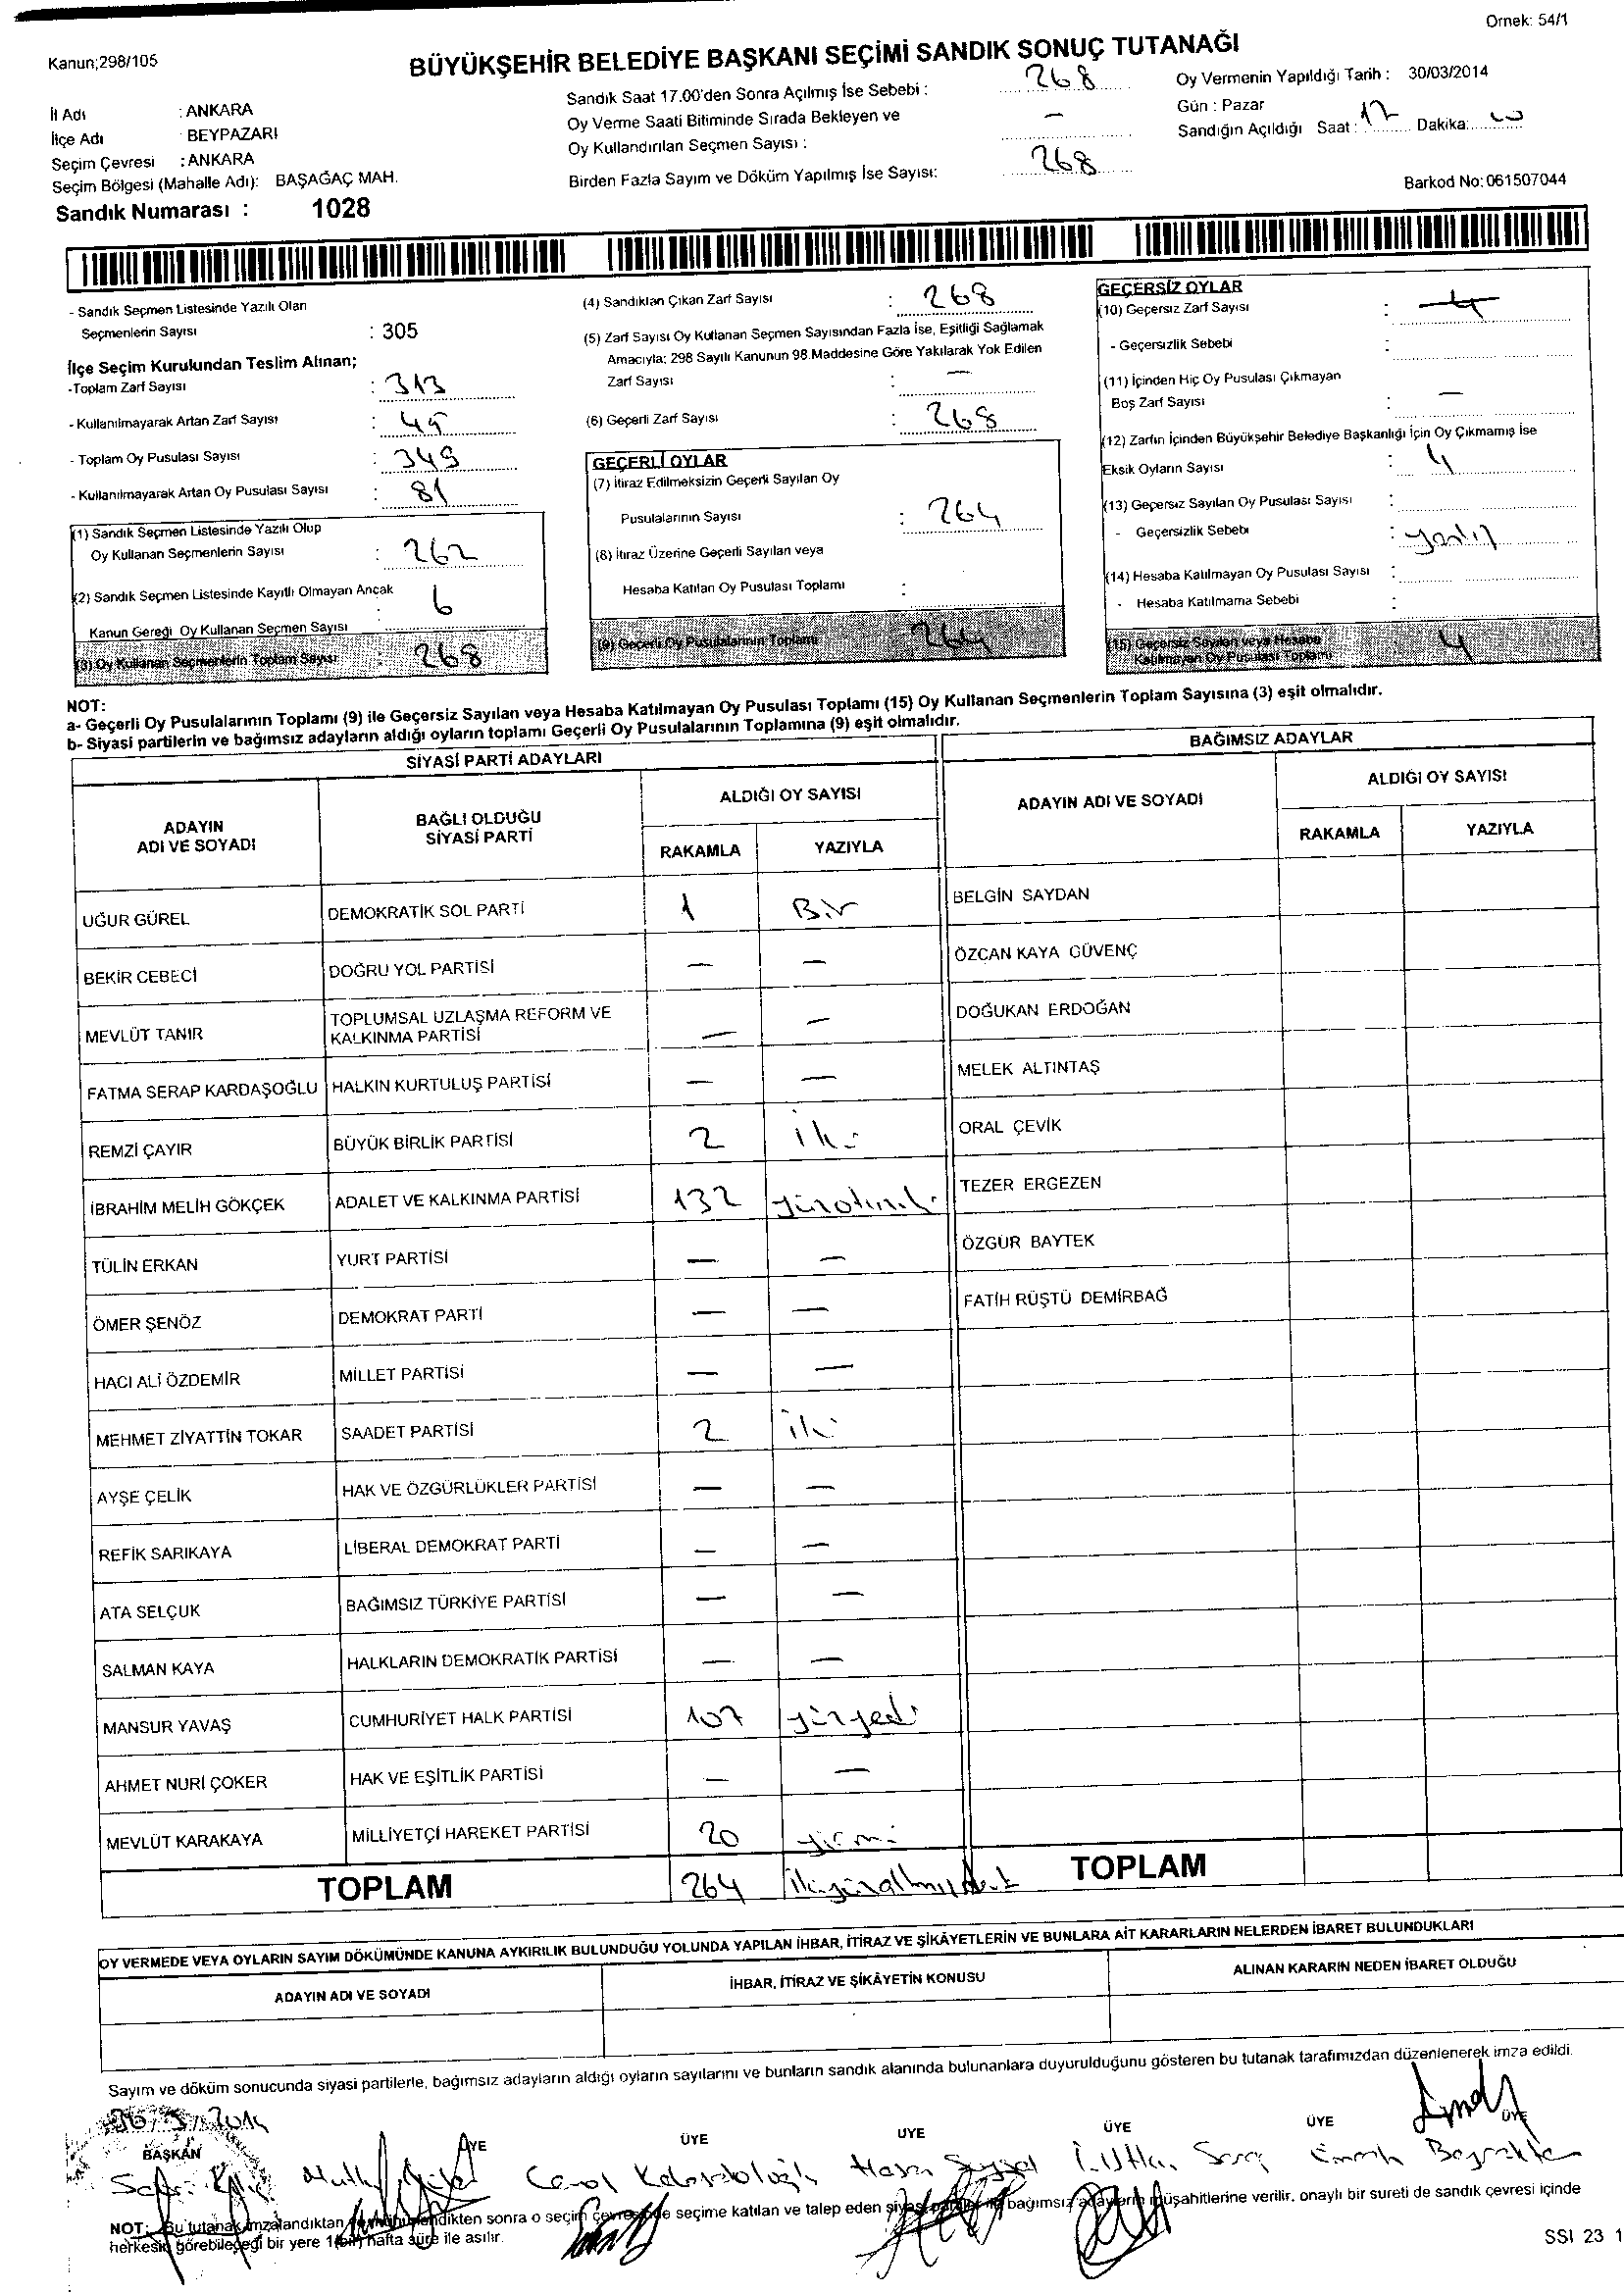 Örnek: 54/1
Kanun;298/105
BÜYÜKŞEHİR BELEDİYE BAŞKANI SEÇİMİ SANDIK SONUÇ TUTANAĞI
İl Adı : ANKARA
İlçe Adı : BEYPAZARI
Seçim Çevresi : ANKARA
Seçim Bölgesi (Mahalle Adı): BAŞAĞAÇ MAH.
Sandık Numarası : 1028
Sandık Saat 17.00'den Sonra Açılmış İse Sebebi : 268
Oy Verme Saati Bitiminde Sırada Bekleyen ve
Oy Kullandırılan Seçmen Sayısı : —
Birden Fazla Sayım ve Döküm Yapılmış İse Sayısı: 268
Oy Vermenin Yapıldığı Tarih : 30/03/2014
Gün : Pazar
Sandığın Açıldığı Saat : 17 Dakika:
Barkod No: 061507044
- Sandık Seçmen Listesinde Yazılı Olan
Seçmenlerin Sayısı : 305
İlçe Seçim Kurulundan Teslim Alınan;
-Toplam Zarf Sayısı : 313
- Kullanılmayarak Artan Zarf Sayısı : 45
- Toplam Oy Pusulası Sayısı : 349
- Kullanılmayarak Artan Oy Pusulası Sayısı : 81
(1) Sandık Seçmen Listesinde Yazılı Olup
Oy Kullanan Seçmenlerin Sayısı : 262
(2) Sandık Seçmen Listesinde Kayıtlı Olmayan Ancak
Kanun Gereği Oy Kullanan Seçmen Sayısı : 6
(3) Oy Kullanan Seçmenlerin Toplam Sayısı : 268
(4) Sandıktan Çıkan Zarf Sayısı : 268
(5) Zarf Sayısı Oy Kullanan Seçmen Sayısından Fazla İse, Eşitliği Sağlamak
Amacıyla; 298 Sayılı Kanunun 98.Maddesine Göre Yakılarak Yok Edilen
Zarf Sayısı : —
(6) Geçerli Zarf Sayısı : 268
GEÇERLİ OYLAR
(7) İtiraz Edilmeksizin Geçerli Sayılan Oy
Pusulalarının Sayısı : 264
(8) İtiraz Üzerine Geçerli Sayılan veya
Hesaba Katılan Oy Pusulası Toplamı :
(9) Geçerli Oy Pusulalarının Toplamı 264
GEÇERSİZ OYLAR
(10) Geçersiz Zarf Sayısı :
- Geçersizlik Sebebi :
(11) İçinden Hiç Oy Pusulası Çıkmayan
Boş Zarf Sayısı : —
(12) Zarfın İçinden Büyükşehir Belediye Başkanlığı İçin Oy Çıkmamış İse
Eksik Oyların Sayısı : 4
(13) Geçersiz Sayılan Oy Pusulası Sayısı :
- Geçersizlik Sebebi :
(14) Hesaba Katılmayan Oy Pusulası Sayısı :
- Hesaba Katılmama Sebebi :
(15) Geçersiz Sayılan veya Hesaba
Katılmayan Oy Pusulası Toplamı 4
NOT:
a- Geçerli Oy Pusulalarının Toplamı (9) ile Geçersiz Sayılan veya Hesaba Katılmayan Oy Pusulası Toplamı (15) Oy Kullanan Seçmenlerin Toplam Sayısına (3) eşit olmalıdır.
b- Siyasi partilerin ve bağımsız adayların aldığı oyların toplamı Geçerli Oy Pusulalarının Toplamına (9) eşit olmalıdır.
SİYASİ PARTİ ADAYLARI
ADAYIN ADI VE SOYADI BAĞLI OLDUĞU SİYASİ PARTİ ALDIĞI OY SAYISI
RAKAMLA YAZIYLA
UĞUR GÜREL DEMOKRATİK SOL PARTİ 1 Bir
BEKİR CEBECİ DOĞRU YOL PARTİSİ — —
MEVLÜT TANIR TOPLUMSAL UZLAŞMA REFORM VE KALKINMA PARTİSİ — —
FATMA SERAP KARDAŞOĞLU HALKIN KURTULUŞ PARTİSİ — —
REMZİ ÇAYIR BÜYÜK BİRLİK PARTİSİ 2 iki
İBRAHİM MELİH GÖKÇEK ADALET VE KALKINMA PARTİSİ 132 yüzotuziki
TÜLİN ERKAN YURT PARTİSİ — —
ÖMER ŞENÖZ DEMOKRAT PARTİ — —
HACI ALİ ÖZDEMİR MİLLET PARTİSİ — —
MEHMET ZİYATTİN TOKAR SAADET PARTİSİ 2 iki
AYŞE ÇELİK HAK VE ÖZGÜRLÜKLER PARTİSİ — —
REFİK SARIKAYA LİBERAL DEMOKRAT PARTİ — —
ATA SELÇUK BAĞIMSIZ TÜRKİYE PARTİSİ — —
SALMAN KAYA HALKLARIN DEMOKRATİK PARTİSİ — —
MANSUR YAVAŞ CUMHURİYET HALK PARTİSİ 107 yüzyedi
AHMET NURİ ÇOKER HAK VE EŞİTLİK PARTİSİ — —
MEVLÜT KARAKAYA MİLLİYETÇİ HAREKET PARTİSİ 20 yirmi
TOPLAM 264 ikiyüzaltmışdört
BAĞIMSIZ ADAYLAR
ADAYIN ADI VE SOYADI ALDIĞI OY SAYISI
RAKAMLA YAZIYLA
BELGİN SAYDAN
ÖZCAN KAYA GÜVENÇ
DOĞUKAN ERDOĞAN
MELEK ALTINTAŞ
ORAL ÇEVİK
TEZER ERGEZEN
ÖZGÜR BAYTEK
FATİH RÜŞTÜ DEMİRBAĞ
TOPLAM
OY VERMEDE VEYA OYLARIN SAYIM DÖKÜMÜNDE KANUNA AYKIRILIK BULUNDUĞU YOLUNDA YAPILAN İHBAR, İTİRAZ VE ŞİKÂYETLERİN VE BUNLARA AİT KARARLARIN NELERDEN İBARET BULUNDUKLARI
ADAYIN ADI VE SOYADI İHBAR, İTİRAZ VE ŞİKÂYETİN KONUSU ALINAN KARARIN NEDEN İBARET OLDUĞU
Sayım ve döküm sonucunda siyasi partilerle, bağımsız adayların aldığı oyların sayılarını ve bunların sandık alanında bulunanlara duyurulduğunu gösteren bu tutanak tarafımızdan düzenlenerek imza edildi.
30/3/2014
BAŞKAN ÜYE ÜYE ÜYE ÜYE ÜYE ÜYE
NOT: Bu tutanak imzalandıktan ve mühürlendikten sonra o seçim çevresinde seçime katılan ve talep eden siyasi partiler ile bağımsız adayların müşahitlerine verilir, onaylı bir sureti de sandık çevresi içinde
herkesin görebileceği bir yere 1(bir) hafta süre ile asılır.
SSI 23 1